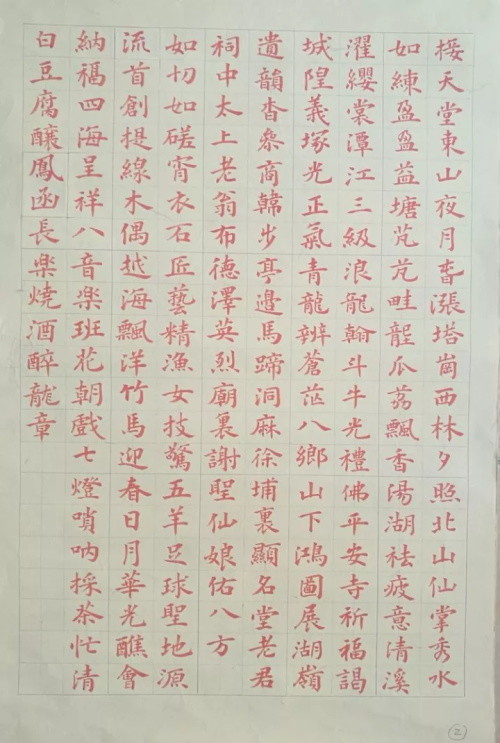 接天堂東山夜月春漲塔崗西林夕照北山仙掌秀水
如練盈盈益塘芃芃畦瓜荔飄香湯湖祛疲意清溪
濯纓裳潭江三級浪龍翰斗牛光禮佛平安寺祈福謁
城隍義塚光正氣青龍辨蒼茫八鄉山下鴻圖展湖嶺
遺韻杏叅商韓步亭邉馬蹄洞麻徐埔裏顯名堂老君
祠中太上老翁布德澤英烈廟裏謝聖仙娘佑八方
如切如磋宵衣石匠藝精漁女技驚五羊足球聖地源
流首創提線木偶越海飄洋竹馬迎春日月華光醮會
納福四海呈祥八音楽班花朝戲七燈嗩吶採茶忙清
白豆腐釀鳳函長楽燒酒醉龍章
②